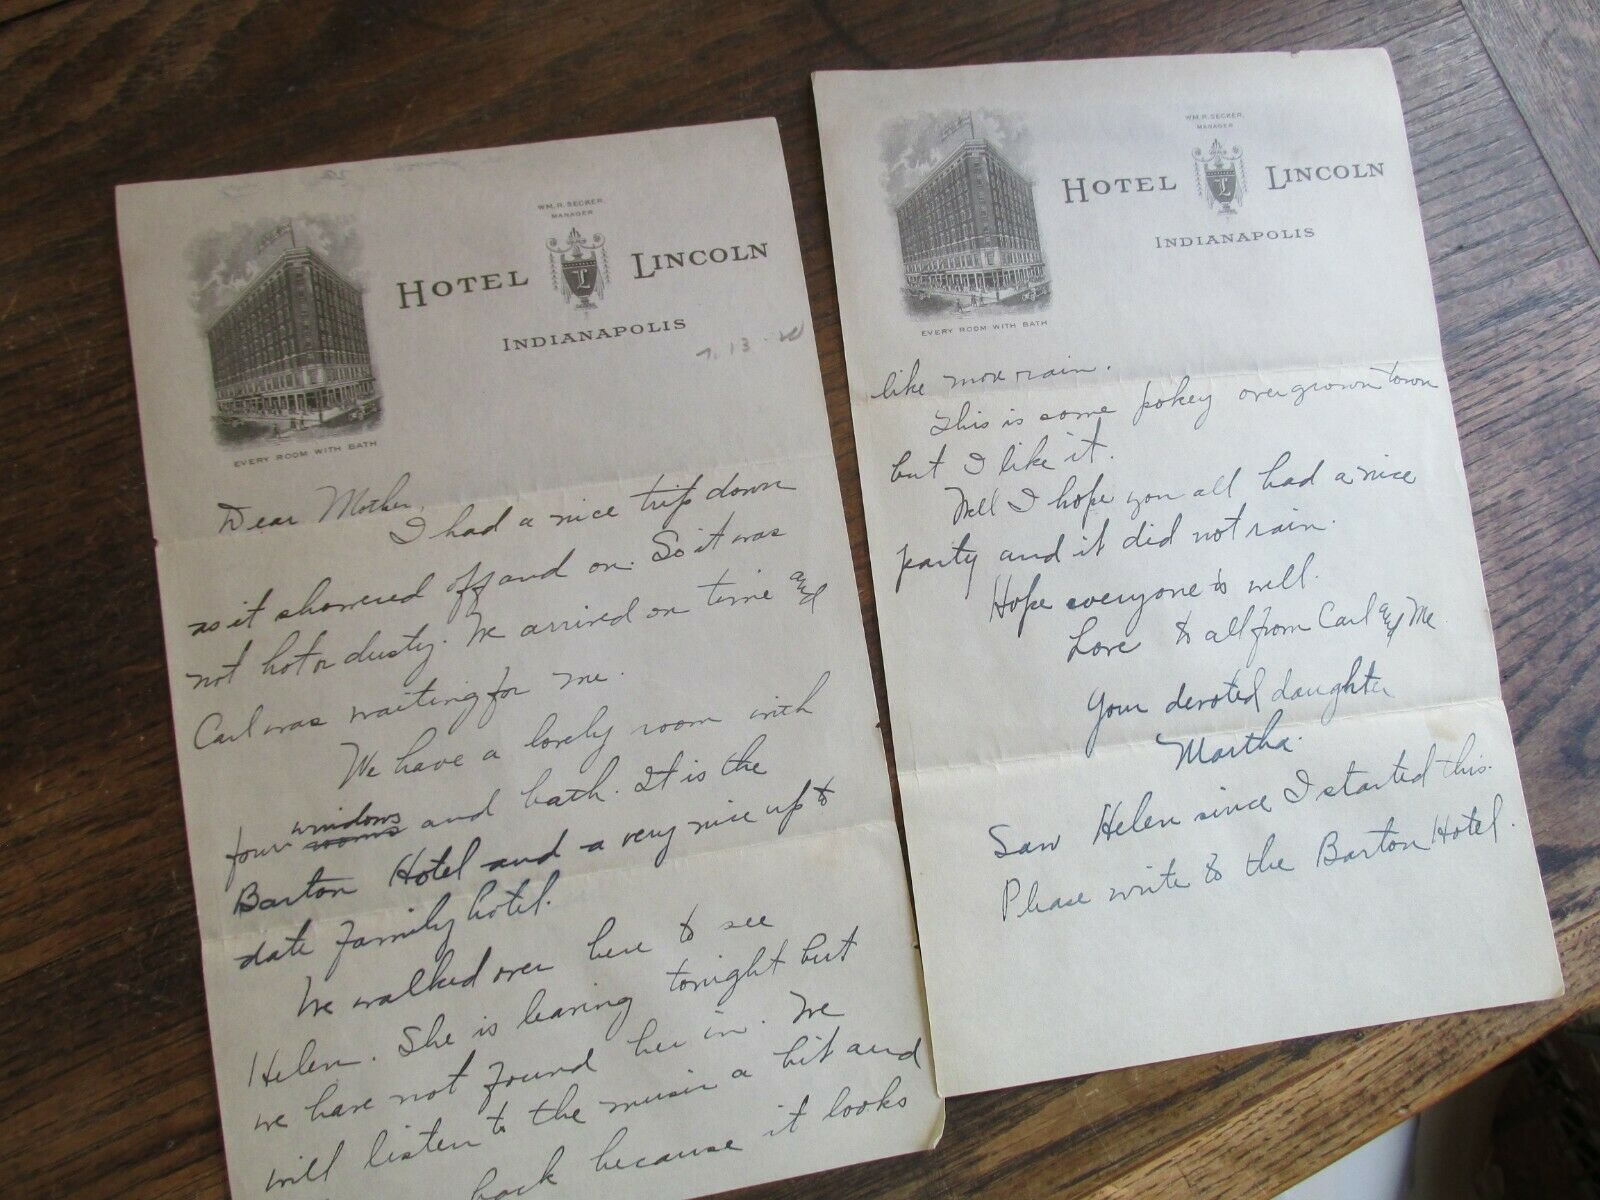 WM. R. SECKER,
MANAGER
HOTEL L LINCOLN
INDIANAPOLIS
EVERY ROOM WITH BATH
7. 13
Dear Mother,
I had a nice trip down
as it showered off and on. So it was
not hot or dusty. We arrived on time and
Carl was waiting for me.
We have a lovely room with
four rooms windows and bath. It is the
Barton Hotel and a very nice up to
date family hotel.
We walked over here to see
Helen. She is leaving tonight but
we have not found her in. We
will listen to the music a bit and
back because it looks
WM. R. SECKER,
MANAGER
HOTEL L LINCOLN
INDIANAPOLIS
EVERY ROOM WITH BATH
like more rain.
This is some pokey overgrown town
but I like it.
Well I hope you all had a nice
party and it did not rain.
Hope everyone is well.
Love to all from Carl and Me
Your devoted daughter
Martha.
Saw Helen since I started this.
Please write to the Barton Hotel.